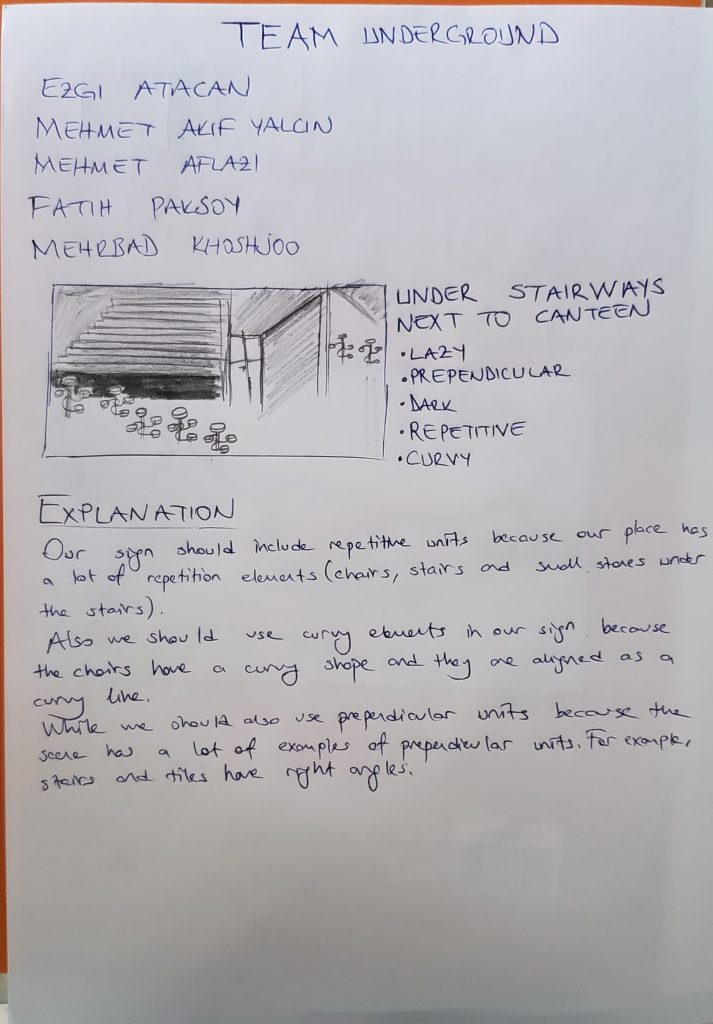 TEAM UNDERGROUND
EZGI ATACAN
MEHMET AKIF YALCIN
MEHMET AFLAZI
FATIH PAKSOY
MEHRBAD KHOSHJOO
UNDER STAIRWAYS
NEXT TO CANTEEN
• LAZY
• PREPENDICULAR
• DARK
• REPETITIVE
• CURVY
EXPLANATION
Our sign should include repetitive units because our place has
a lot of repetition elements (chairs, stairs and small stones under
the stairs).
Also we should use curvy elements in our sign because
the chairs have a curvy shape and they are aligned as a
curvy line.
While we should also use prependicular units because the
scene has a lot of examples of prependicular units. For example,
stairs and tiles have right angles.